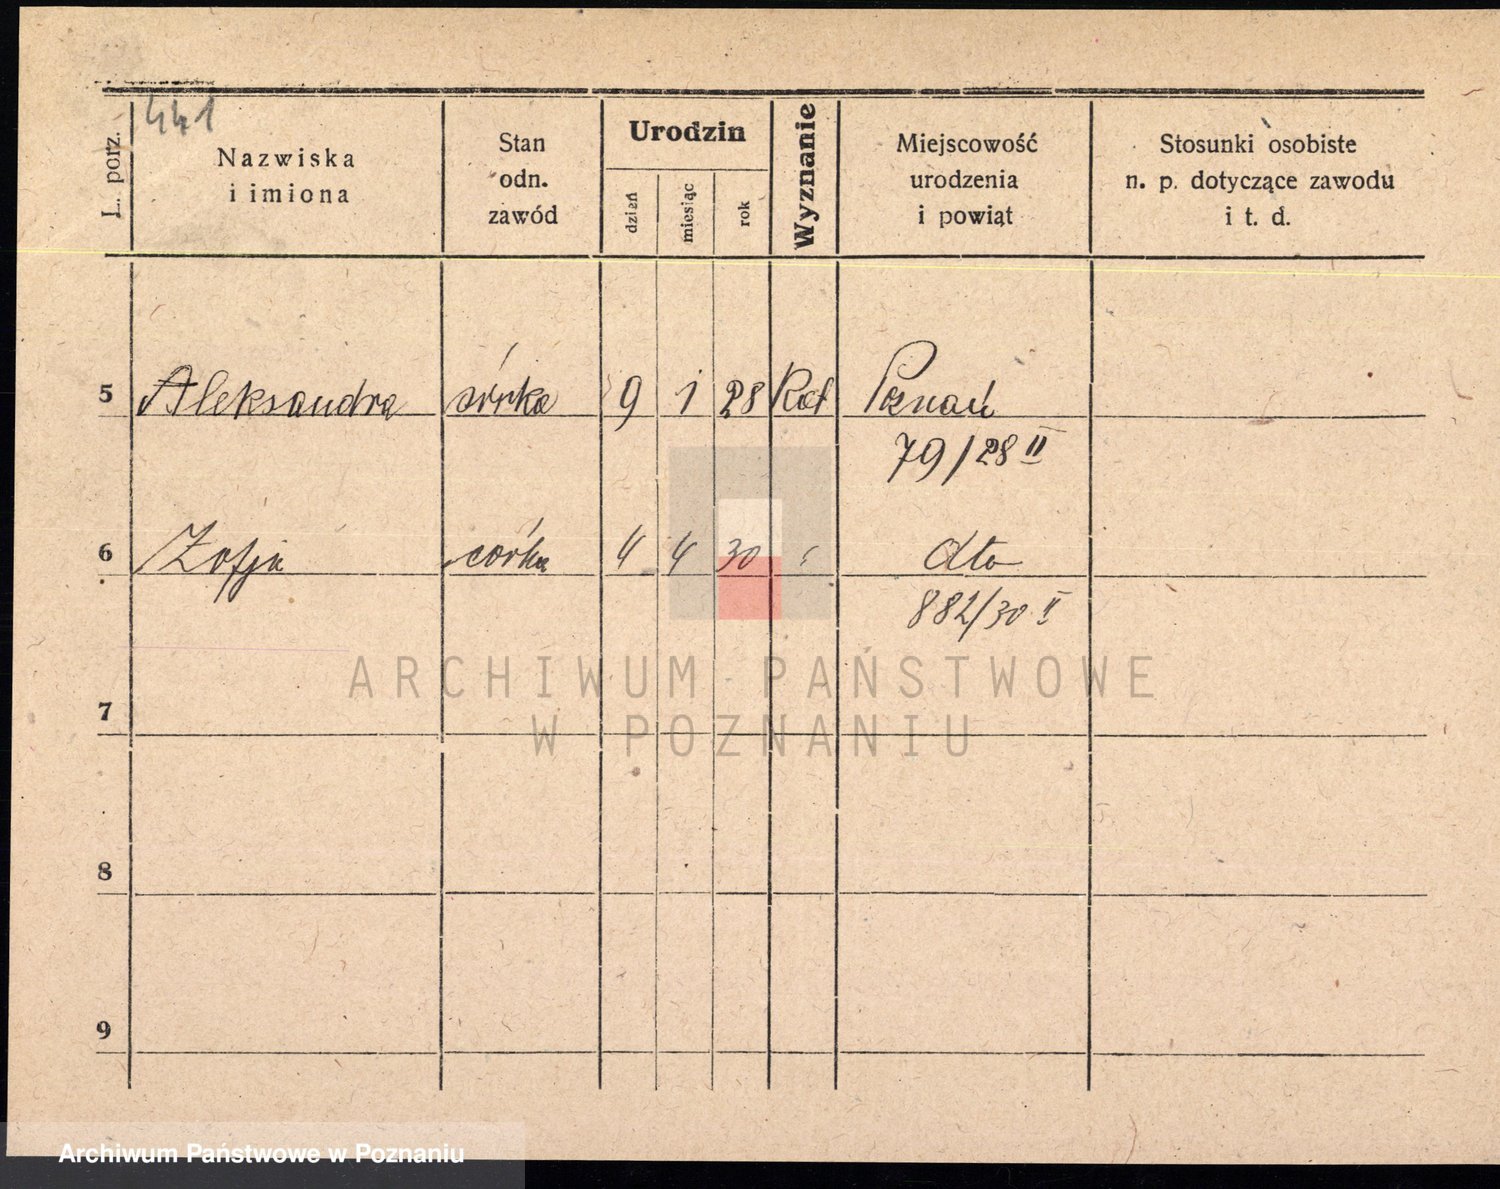 441
L. porz.
Nazwiska
i imiona
Stan
odn.
zawód
Urodzin
dzień
miesiąc
rok
Wyznanie
Miejscowość
urodzenia
i powiąt
Stosunki osobiste
n. p. dotyczące zawodu
i t. d.
5 Aleksandra córka 9 1 28 Kat Poznań
79/28 II
6 Zofja córka 4 4 30 " dto
882/30 II
7
8
9
ARCHIWUM PAŃSTWOWE
W POZNANIU
Archiwum Państwowe w Poznaniu